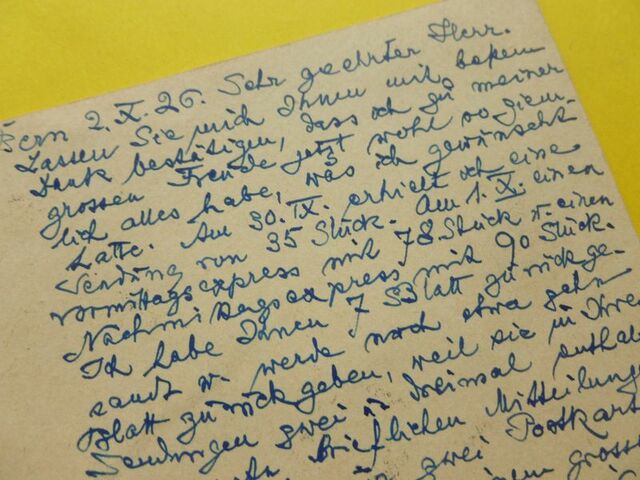 Bern 2. X. 26. Sehr geehrter Herr.
Lassen Sie mich Ihnen mit bestem
Dank bestätigen, dass ich zu meiner
grossen Freude jetzt wohl so ziem-
lich alles habe, was ich gewünscht
hatte. Am 30. IX. erhielt ich eine
Sendung von 35 Stück. Am 1. X. einen
Vormittagsexpress mit 78 Stück u. einen
Nachmittagsexpress mit 90 Stück.
Ich habe Ihnen 7 Blatt zurückge-
sandt u. werde noch etwa zehn
Blatt zurückgeben, weil sie in Ihren
Sendungen zwei u. dreimal enthal
brieflichen Mitteilung
zwei Postkart
grosse